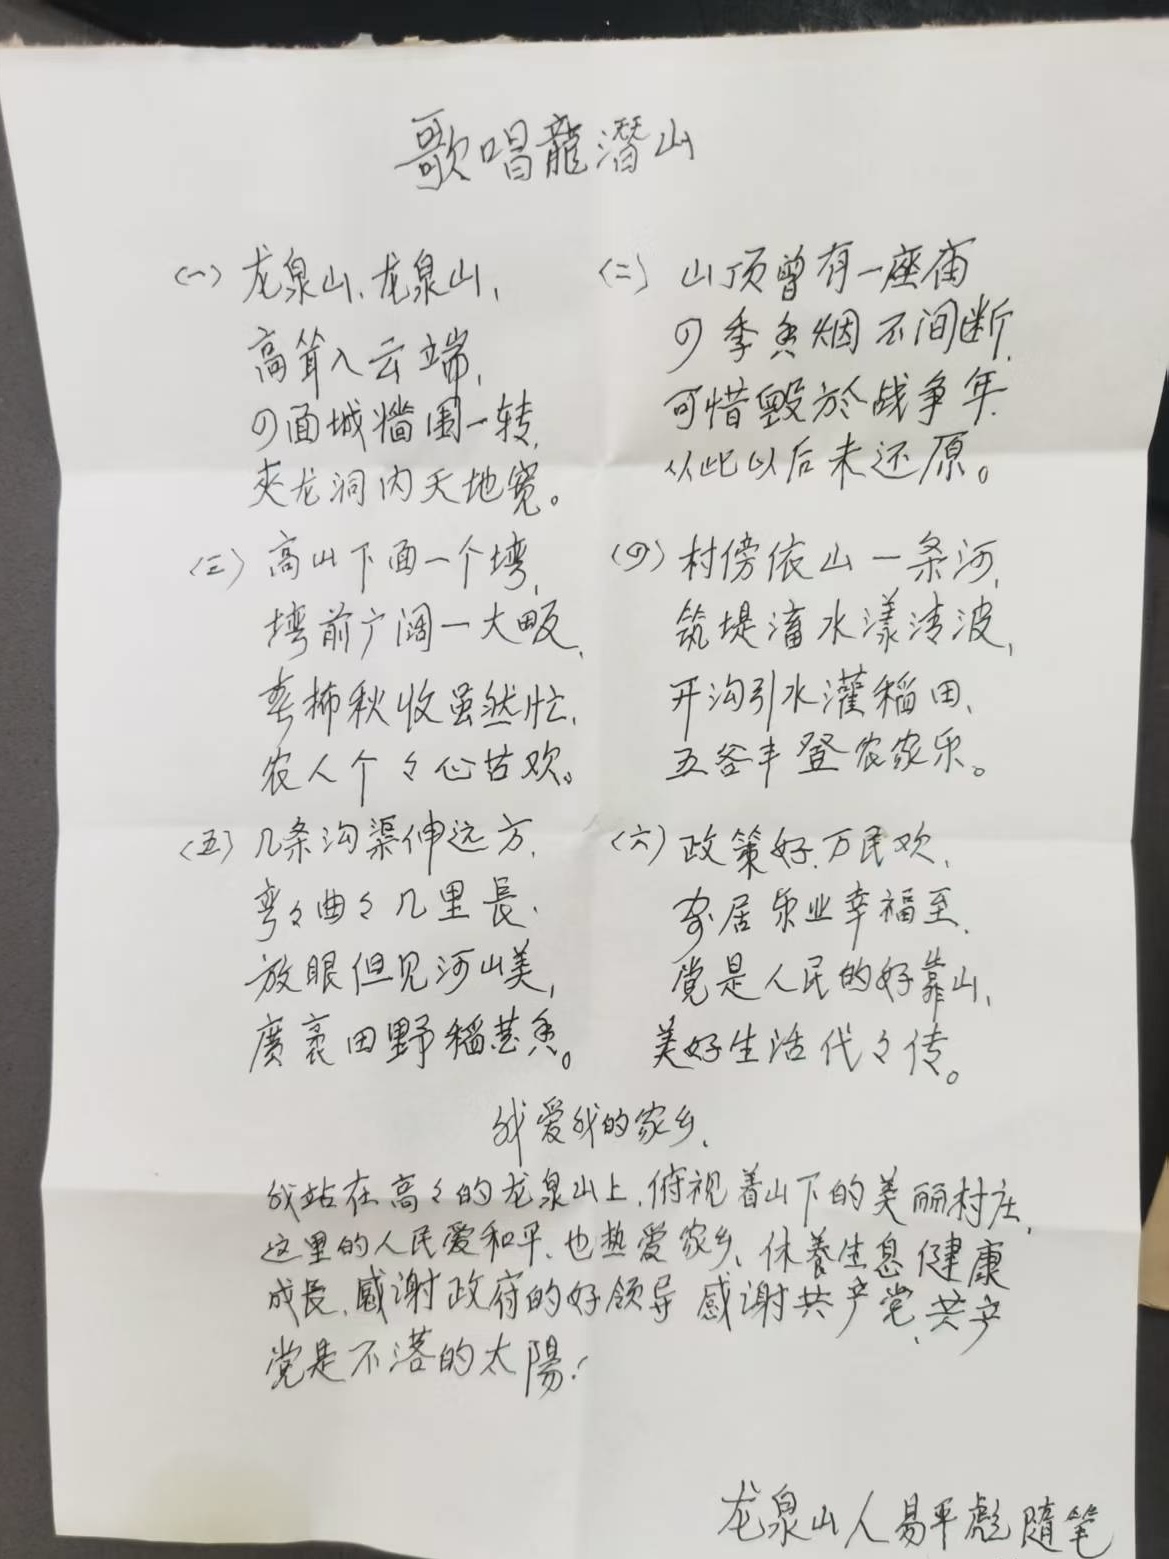 歌唱龍潛山
(一) 龙泉山、龙泉山,
高耸入云端,
四面城墙围一转,
夹龙洞内天地宽。
(二) 山顶曾有一座庙
四季香烟不间断,
可惜毁於战争年
从此以后未还原。
(三) 高山下面一个塆,
塆前广阔一大畈,
春播秋收虽然忙,
农人个々心甘欢。
(四) 村傍依山一条河,
筑堤蓄水漾清波,
开沟引水灌稻田、
五谷丰登农家乐。
(五) 几条沟渠伸远方,
弯々曲々几里長,
放眼但见河山美,
廣袤田野稻花香。
(六) 政策好、万民欢,
安居乐业幸福至、
党是人民的好靠山,
美好生活代々传。
我爱我的家乡、
我站在高々的龙泉山上,俯视着山下的美丽村庄,
这里的人民爱和平、也热爱家乡、休養生息健康
成長、感谢政府的好领导 感谢共产党、共产
党是不落的太陽!
龙泉山人易平彪随笔